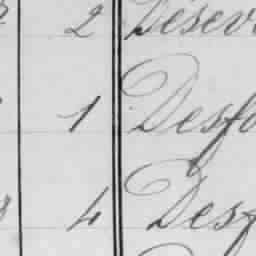 2 Desev
1 Desfo
4 Desf